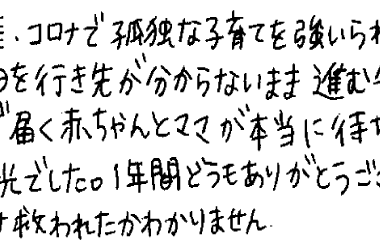 ・コロナで孤独な子育てを強いられ
を行き先が分からないまま進む
届く赤ちゃんとママが本当に待
光でした。1年間どうもありがとうご
救われたかわかりません.